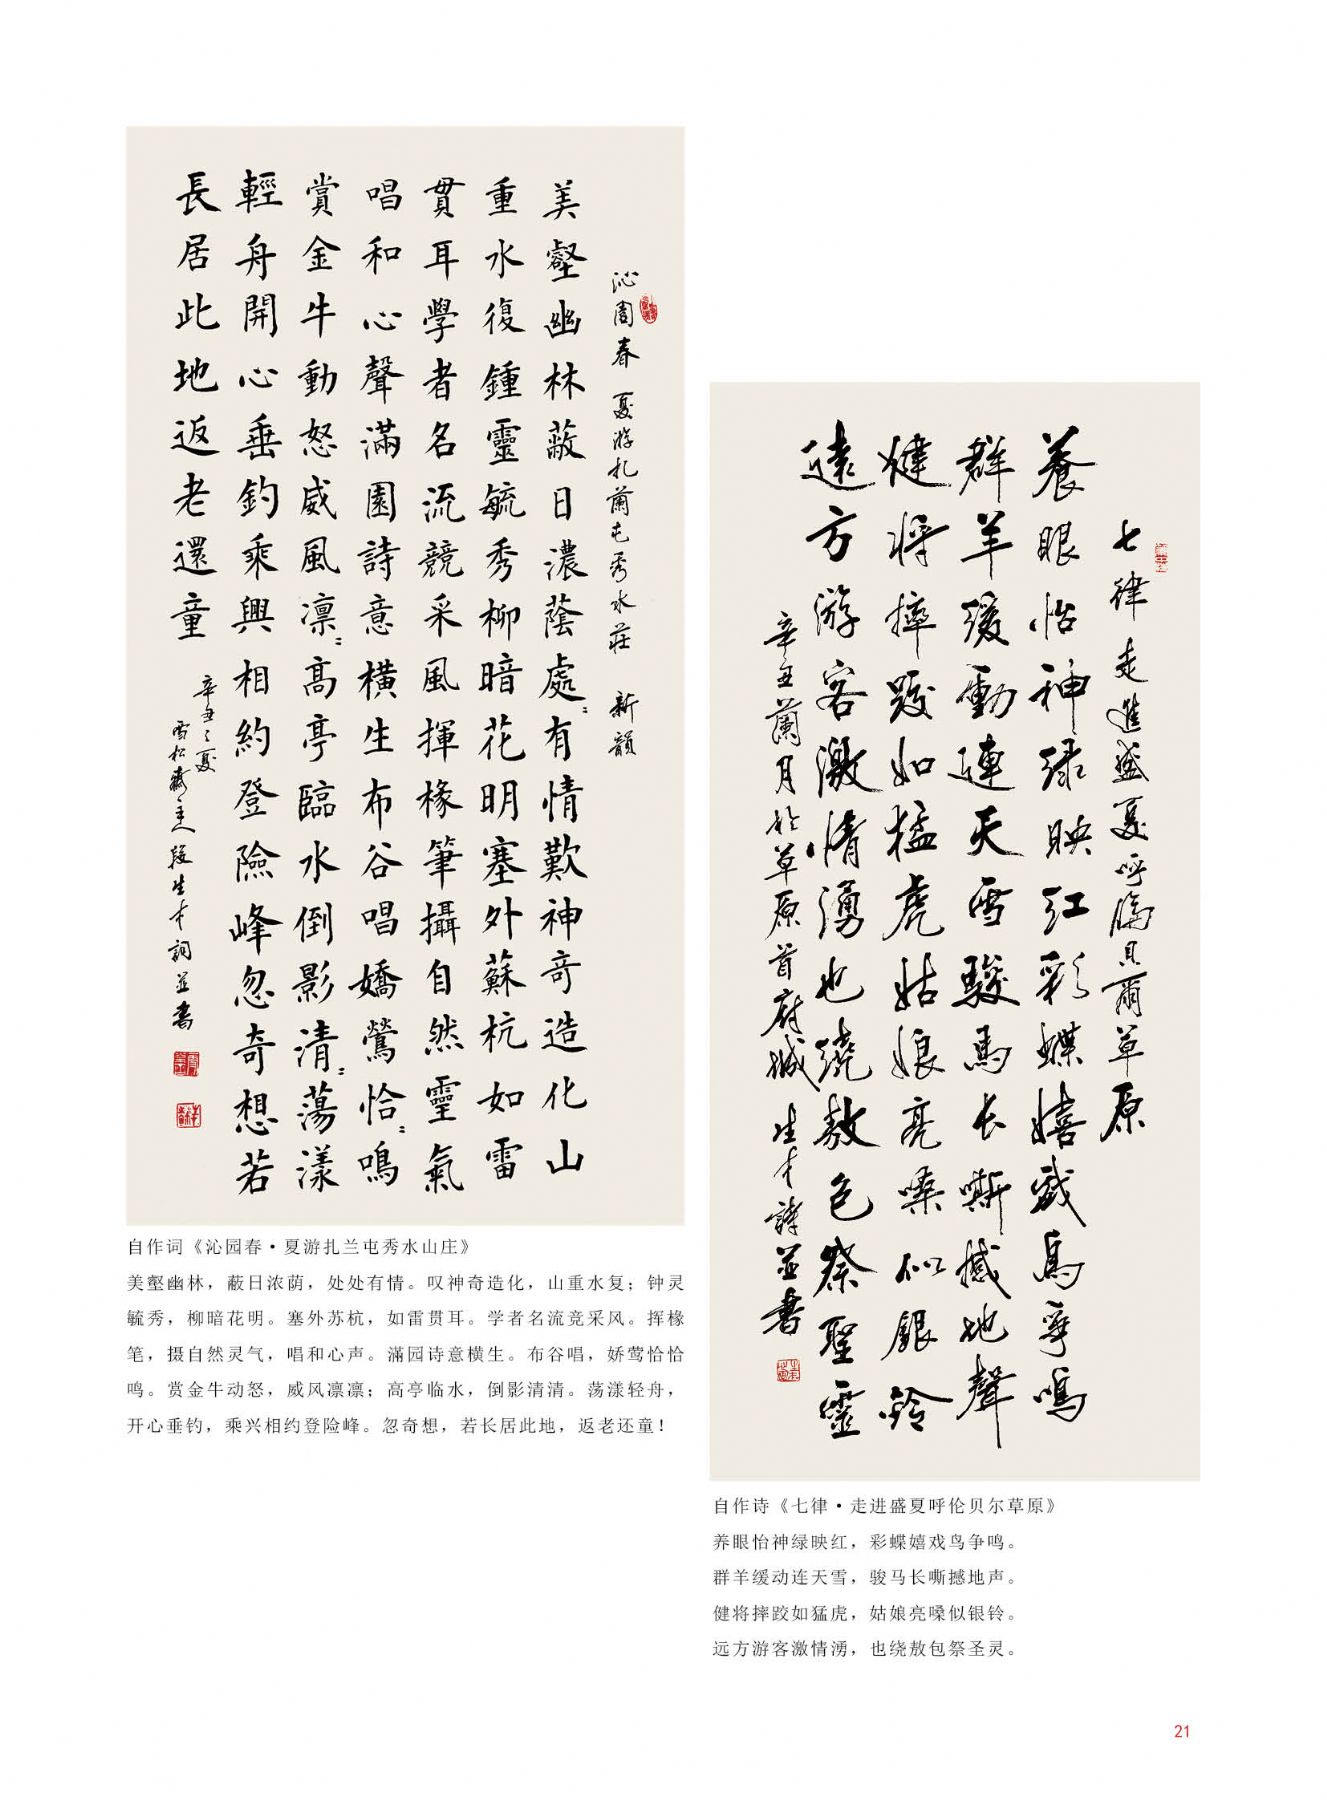 沁園春 夏游扎蘭屯秀水莊 新韻
美壑幽林蔽日濃蔭處〻有情歎神奇造化山
重水復鍾靈毓秀柳暗花明塞外蘇杭如雷
貫耳學者名流競采風揮椽筆攝自然靈氣
唱和心聲滿園詩意橫生布谷唱嬌鶯恰〻鳴
賞金牛動怒威風凛〻高亭臨水倒影清〻蕩漾
輕舟開心垂釣乘興相約登險峰忽奇想若
長居此地返老還童
辛丑之夏
雪松齋主人段生才詞並書
自作词《沁园春·夏游扎兰屯秀水山庄》
美壑幽林，蔽日浓荫，处处有情。叹神奇造化，山重水复；钟灵
毓秀，柳暗花明。塞外苏杭，如雷贯耳。学者名流竞采风。挥椽
笔，摄自然灵气，唱和心声。满园诗意横生。布谷唱，娇莺恰恰
鸣。赏金牛动怒，威风凛凛；高亭临水，倒影清清。荡漾轻舟，
开心垂钓，乘兴相约登险峰。忽奇想，若长居此地，返老还童！
七律走進盛夏呼倫貝爾草原
養眼怡神绿映红彩蝶嬉戏鳥争鳴
群羊缓動連天雪駿馬长嘶撼地聲
健将摔跤如猛虎姑娘亮嗓似銀鈴
遠方游客激情湧也繞敖包祭聖靈
辛丑蘭月於草原首府城生才詩並書
自作诗《七律·走进盛夏呼伦贝尔草原》
养眼怡神绿映红，彩蝶嬉戏鸟争鸣。
群羊缓动连天雪，骏马长嘶撼地声。
健将摔跤如猛虎，姑娘亮嗓似银铃。
远方游客激情湧，也绕敖包祭圣灵。
21